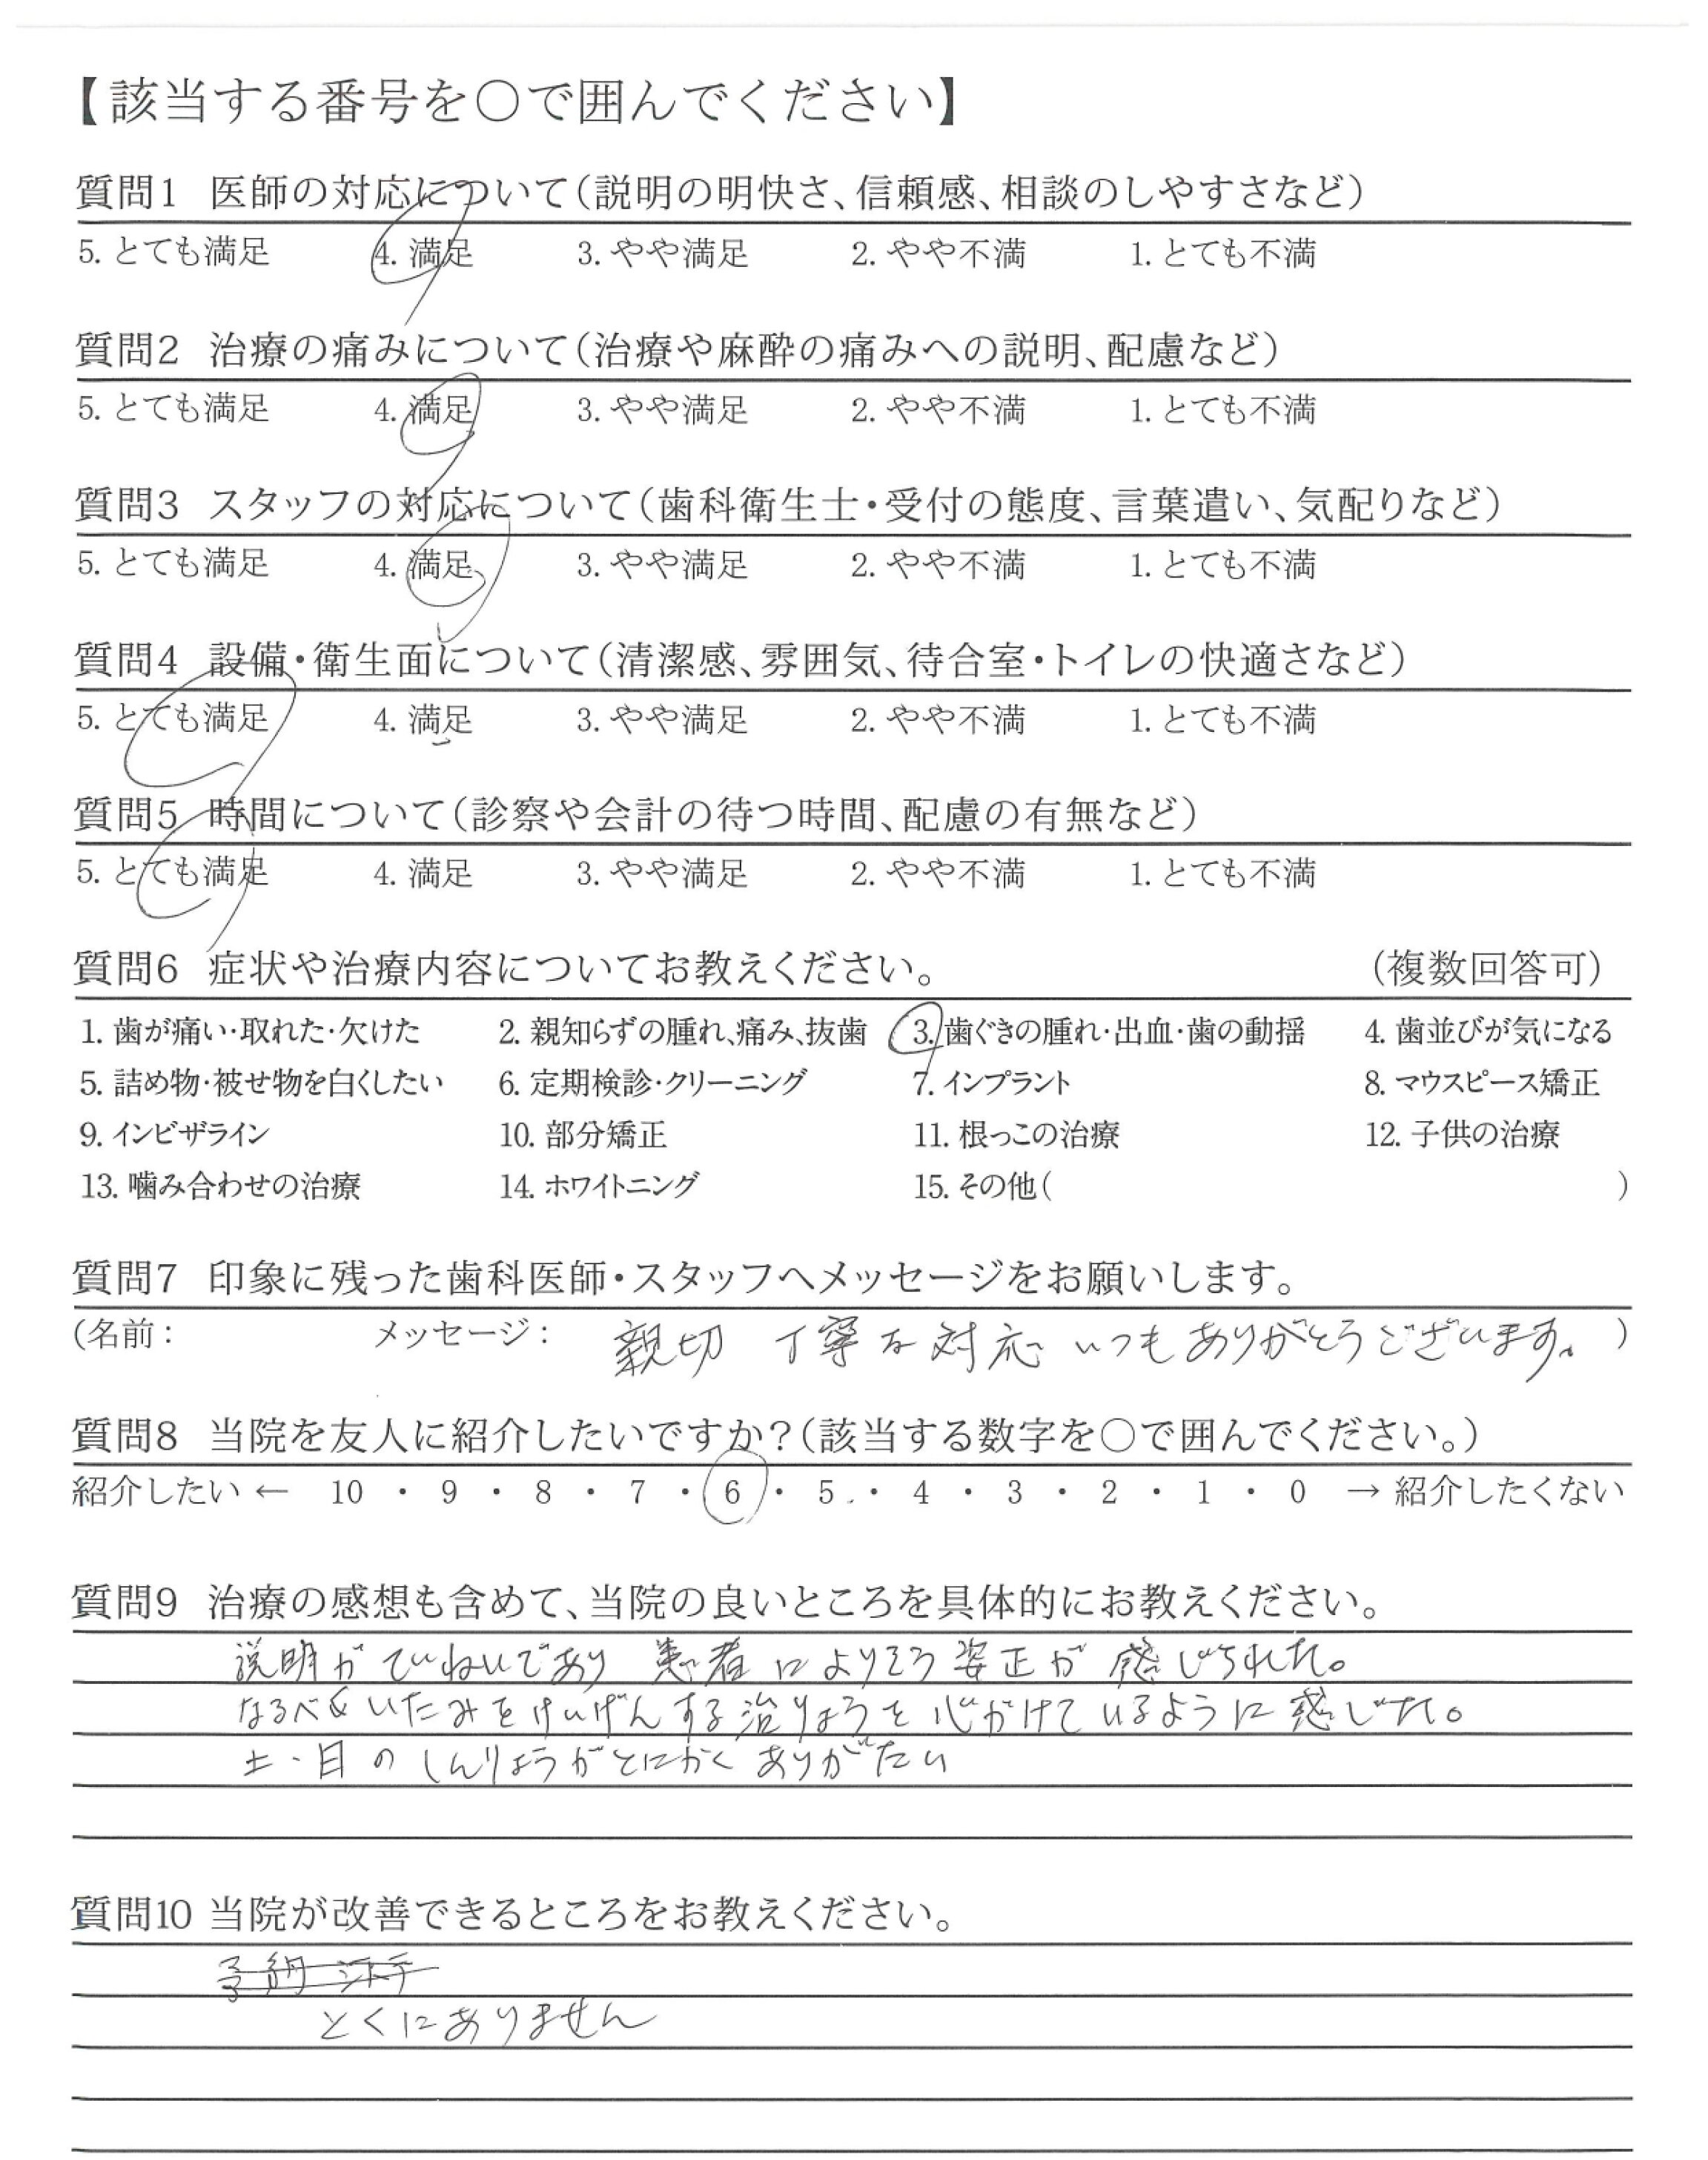 【該当する番号を〇で囲んでください】
質問1 医師の対応について(説明の明快さ、信頼感、相談のしやすさなど)
5. とても満足 4. 満足 3. やや満足 2. やや不満 1. とても不満
質問2 治療の痛みについて(治療や麻酔の痛みへの説明、配慮など)
5. とても満足 4. 満足 3. やや満足 2. やや不満 1. とても不満
質問3 スタッフの対応について(歯科衛生士・受付の態度、言葉遣い、気配りなど)
5. とても満足 4. 満足 3. やや満足 2. やや不満 1. とても不満
質問4 設備・衛生面について(清潔感、雰囲気、待合室・トイレの快適さなど)
5. とても満足 4. 満足 3. やや満足 2. やや不満 1. とても不満
質問5 時間について(診察や会計の待つ時間、配慮の有無など)
5. とても満足 4. 満足 3. やや満足 2. やや不満 1. とても不満
質問6 症状や治療内容についてお教えください。 (複数回答可)
1. 歯が痛い・取れた・欠けた 2. 親知らずの腫れ、痛み、抜歯 3. 歯ぐきの腫れ・出血・歯の動揺 4. 歯並びが気になる
5. 詰め物・被せ物を白くしたい 6. 定期検診・クリーニング 7. インプラント 8. マウスピース矯正
9. インビザライン 10. 部分矯正 11. 根っこの治療 12. 子供の治療
13. 噛み合わせの治療 14. ホワイトニング 15. その他( )
質問7 印象に残った歯科医師・スタッフへメッセージをお願いします。
(名前: メッセージ: 親切 丁寧な対応 いつもありがとうございます。 )
質問8 当院を友人に紹介したいですか?(該当する数字を〇で囲んでください。)
紹介したい ← 10 ・ 9 ・ 8 ・ 7 ・ 6 ・ 5 ・ 4 ・ 3 ・ 2 ・ 1 ・ 0 → 紹介したくない
質問9 治療の感想も含めて、当院の良いところを具体的にお教えください。
説明がていねいであり 患者によりそう姿正が 感じられた。
なるべくいたみをけいげんする治りょうを心がけているように感じた。
土・日のしんりょうがとにかくありがたい
質問10 当院が改善できるところをお教えください。
とくにありません